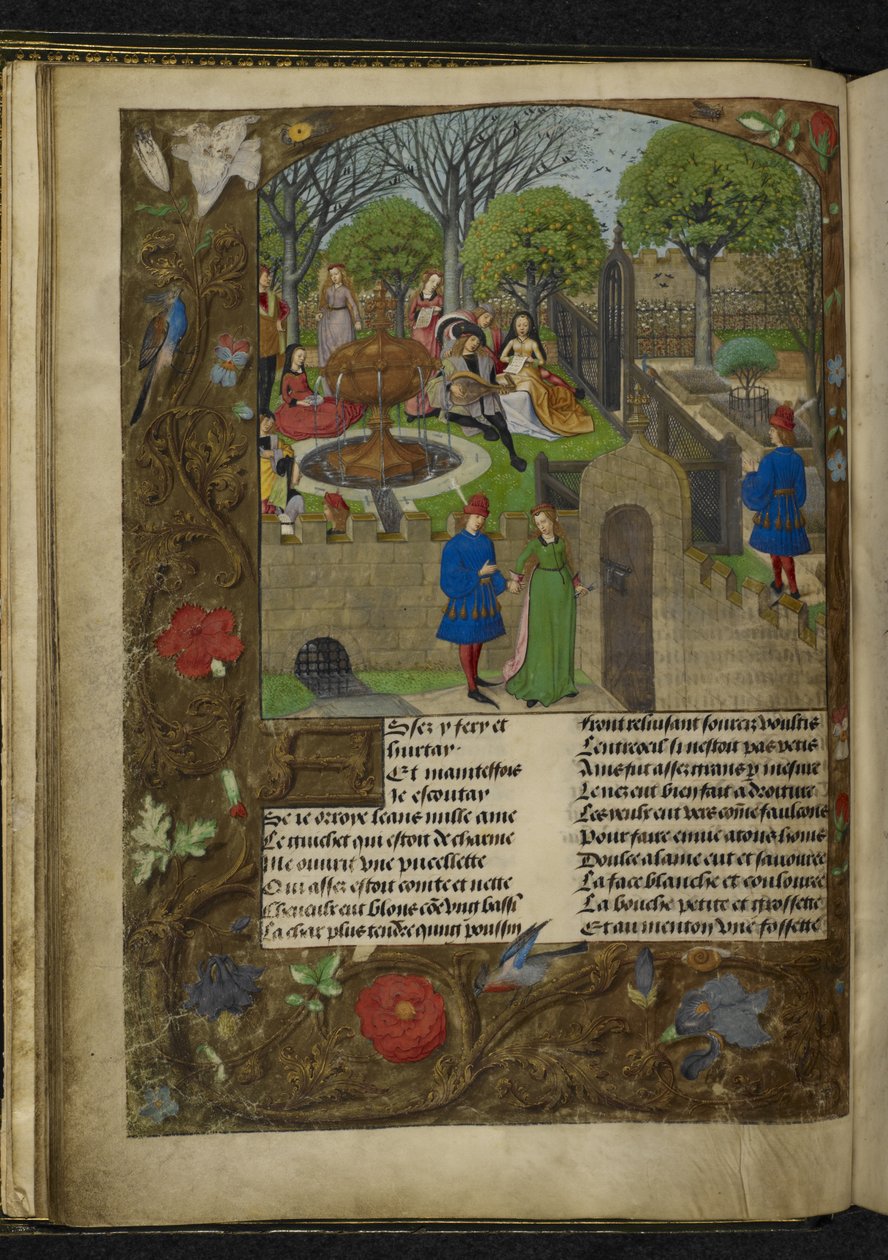 Ssez y fery et
hurtay.
Et maintesfois
Je escoutay
Se ie orroye leans nulle ame
Le guichet qui estoit de charme
Me ouurit vne pucellette
Qui assez estoit cointe et nette
Cheueulx eut blons cõe vng bassĩ
La char plus tendre qung poussin
Front reluisant sourcz voultis
Lentreoeil si nestoit pas petis
Ains fut assez grans p mesure
Le nez eut bien fait a droiture
Les yeulx eut vers cõme faulcons
Pour faire enuie a tous homs
Doulce alaine eut et sauouree
La face blanche et coulouree
La bouche petite et grossette
Et au menton vne fossette